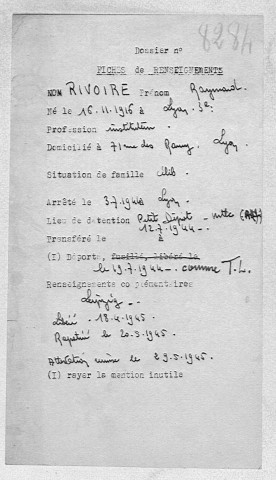 Dossier n°
8284
FICHES de RENSEIGNEMENTS
NOM RIVOIRE Prénom Raymond.
Né le 16.11.1916 à Lyon 3e.
Profession instituteur.
Domicilié à 71 rue des , Lyon.
Situation de famille célib.
Arrêté le 3.7.1944 Lyon.
Lieu de détention Petit Dépôt -
12.7.1944 -.
Transféré le à
(I) Déporté, fusillé, libéré le
le 19.7.1944 -. comme T.L.
Renseignements complémentaires
Leipzig -.
Libéré . 18.4.1945.
Rapatrié le 20.5.1945.
Attestation le 29.5.1945.
(I) rayer la mention inutile